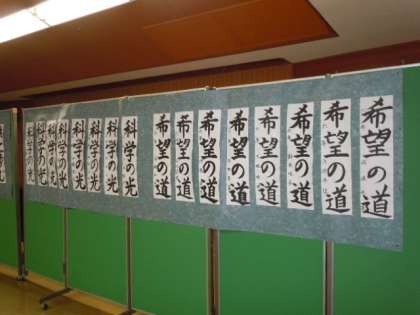 希望の道
希望の道
希望の道
希望の道
希望の道
希望の道
希望の道
希望の道
科学の光
科学の光
科学の光
科学の光
科学の光
科学の光
科学の光
科学の光